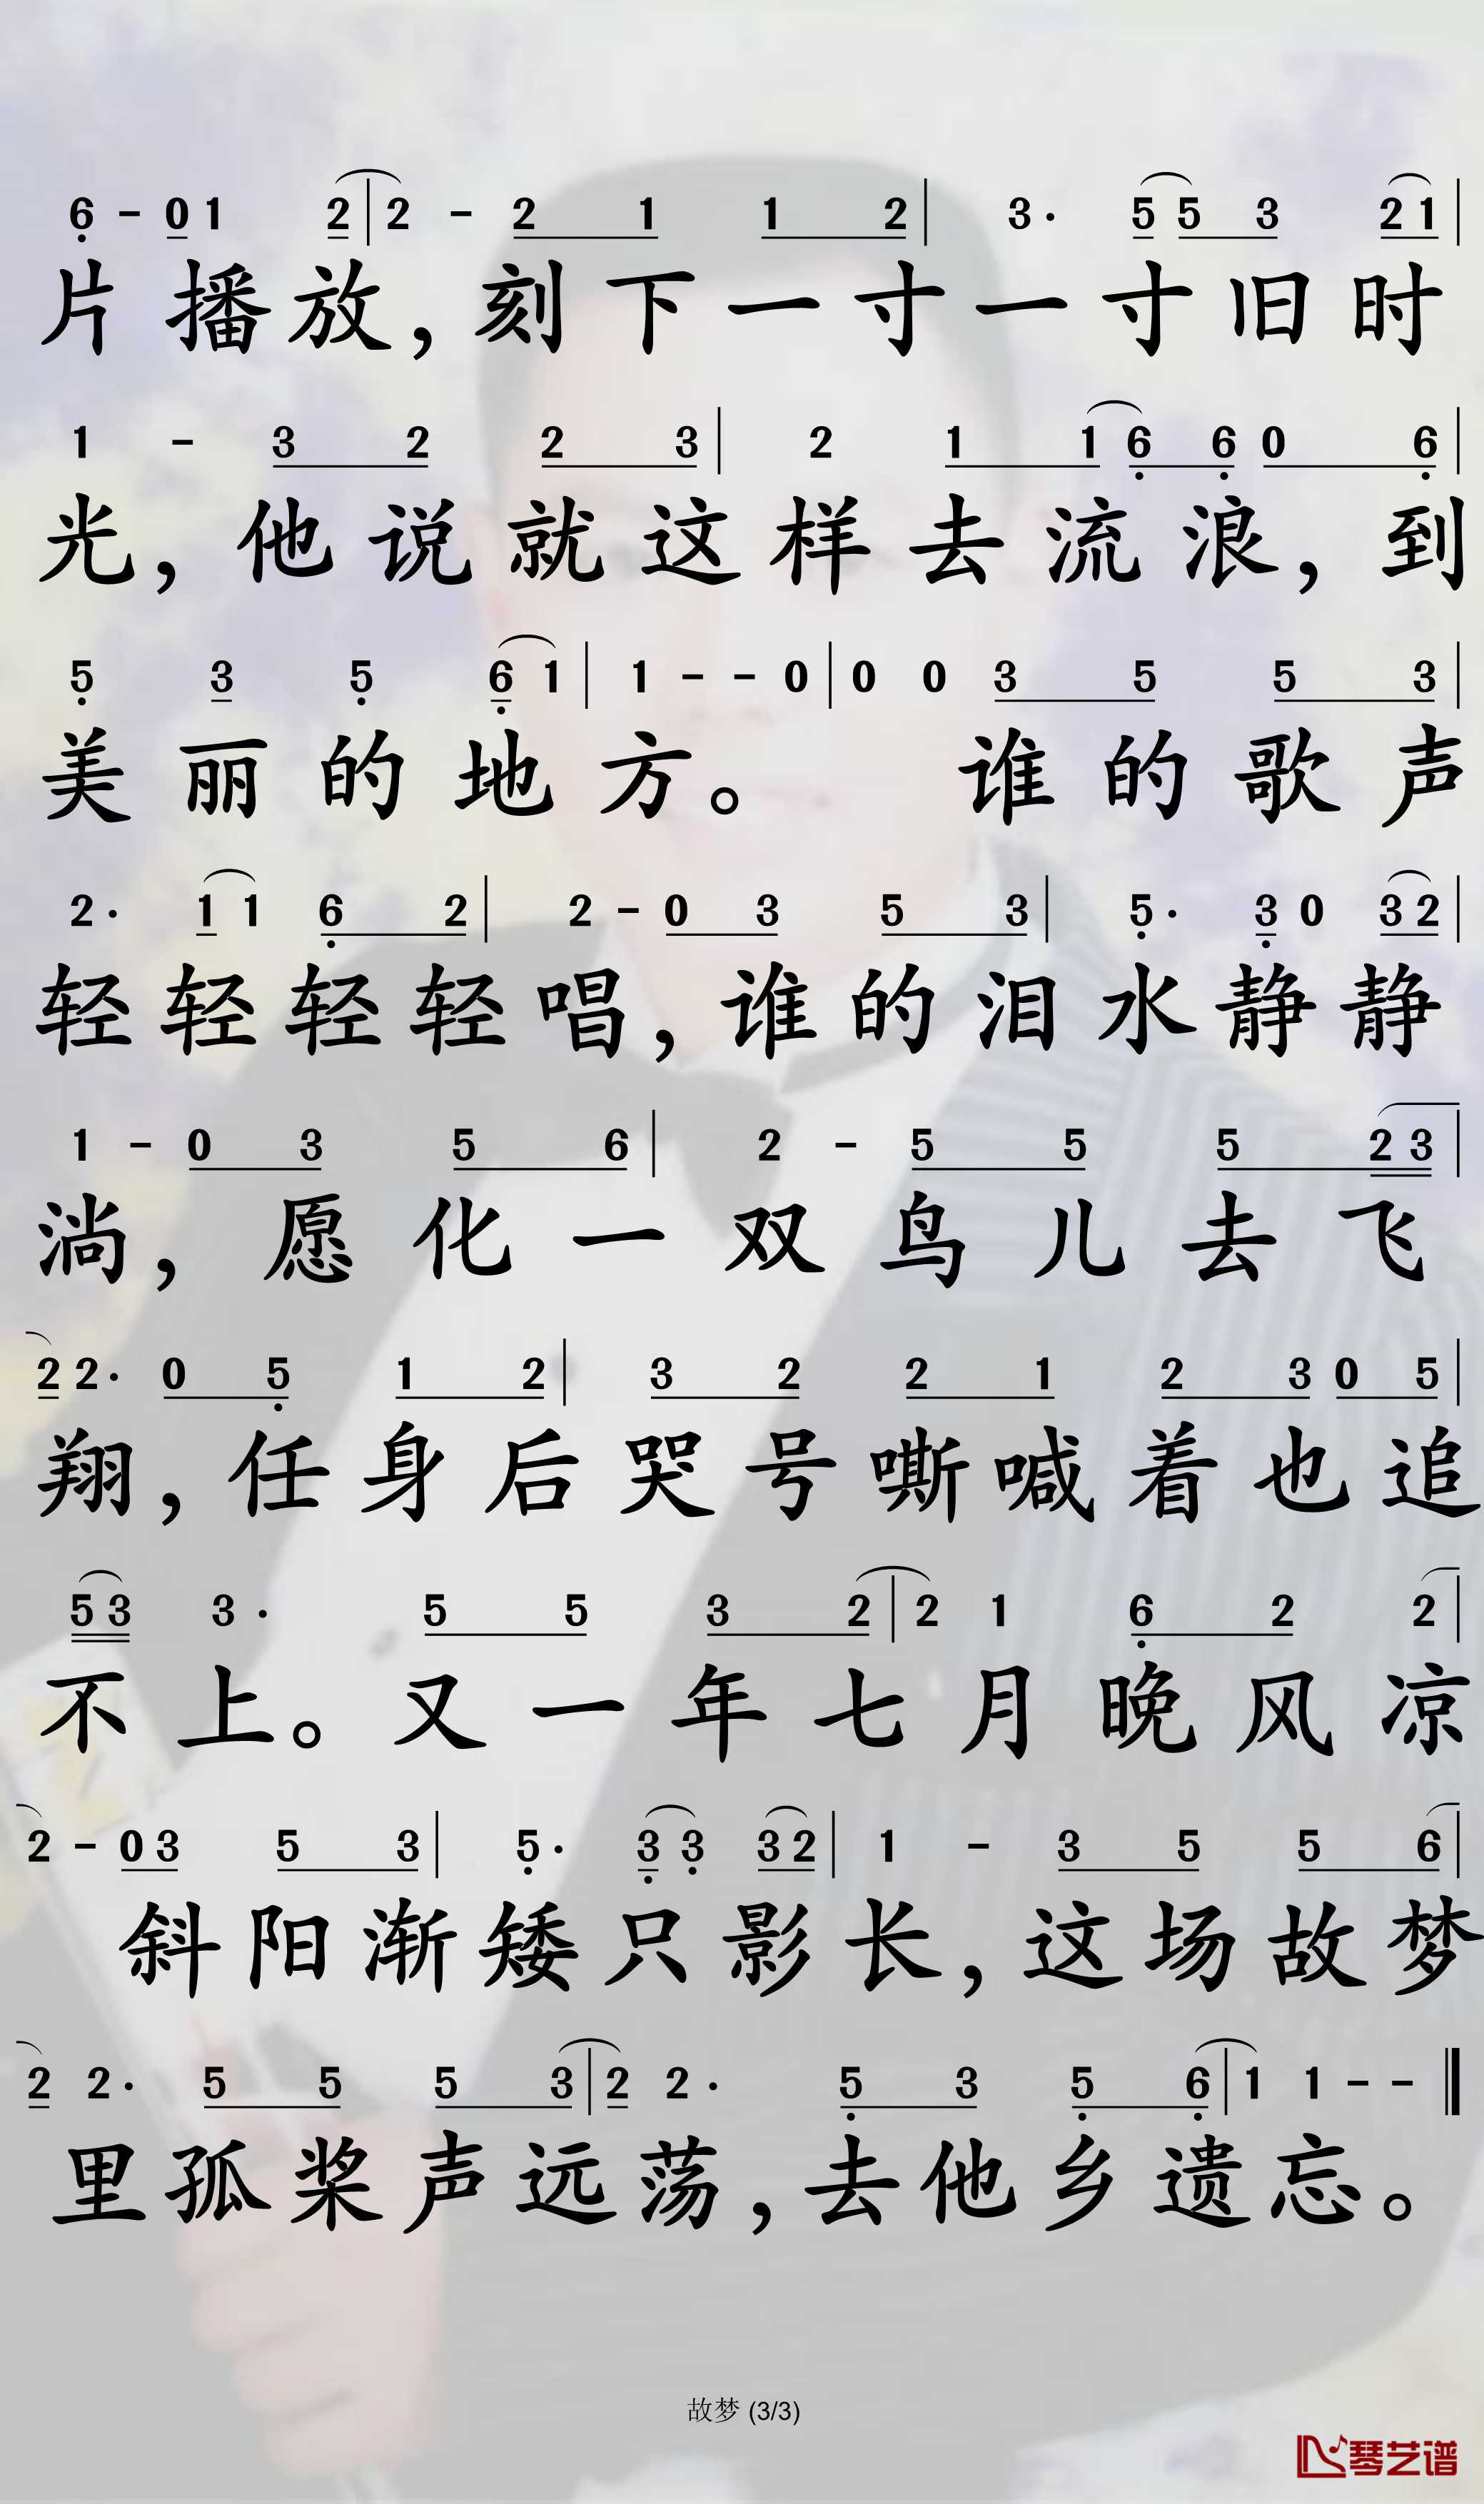 6 - 0 1 2 | 2 - 2 1 1 2 | 3 · 5 5 3 2 1 |
片播放，刻下一寸一寸旧时
1 - 3 2 2 3 | 2 1 1 6 6 0 6 |
光，他说就这样去流浪，到
5 3 5 6 1 | 1 - - 0 | 0 0 3 5 5 3 |
美丽的地方。 谁的歌声
2 · 1 1 6 2 | 2 - 0 3 5 3 | 5 · 3 0 3 2 |
轻轻轻轻唱，谁的泪水静静
1 - 0 3 5 6 | 2 - 5 5 5 2 3 |
淌，愿化一双鸟儿去飞
2 2 · 0 5 1 2 | 3 2 2 1 2 3 0 5 |
翔，任身后哭号嘶喊着也追
5 3 3 · 5 5 3 2 | 2 1 6 2 2 |
不上。又一年七月晚风凉
2 - 0 3 5 3 | 5 · 3 3 3 2 | 1 - 3 5 5 6 |
斜阳渐矮只影长，这场故梦
2 2 · 5 5 5 3 | 2 2 · 5 3 5 6 | 1 1 - - ‖
里孤桨声远荡，去他乡遗忘。
故梦 (3/3)
琴艺谱